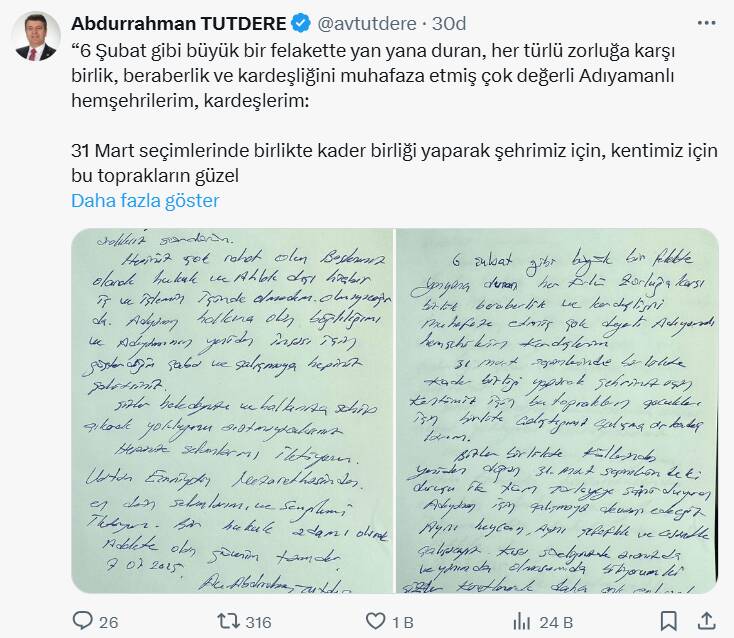 Abdurrahman TUTDERE @avtutdere · 30d
“6 Şubat gibi büyük bir felakette yan yana duran, her türlü zorluğa karşı
birlik, beraberlik ve kardeşliğini muhafaza etmiş çok değerli Adıyamanlı
hemşehrilerim, kardeşlerim:
31 Mart seçimlerinde birlikte kader birliği yaparak şehrimiz için, kentimiz için
bu toprakların güzel
Daha fazla göster
Hepiniz çok rahat olun Başkanınız
olarak hukuk ve Ahlak dışı hiçbir
iş ve işlemin içinde olmadım. olmayacağım
da. Adıyaman halkına olan bağlılığımı
ve Adıyamanın yeniden inşası için
gösterdiğim çaba ve çalışmaya hepiniz
şahitsiniz.
Sizler
çıkarak yokluğumu aratmayacaksınız
Hepinize selamlarımı iletiyorum.
Vatan Emniyeti Nezarethanesinden
en derin selamlarımı ve sevgilerimi
İletiyorum. Bir hukuk adamı olarak
Adalete olan güvenim tamdır.
7.07.2025
Av. Abdurrahman Tutdere
6 şubat gibi büyük bir felakette
yanyana duran her türlü zorluğa karşı
birlik beraberlik ve kardeşliğini
muhafaza etmiş çok değerli Adıyamanlı
hemşehrilerim kardeşlerim
31 mart seçimlerinde birlikte
kader birliği yaparak şehrimiz için
kentimiz için bu toprakların çocukları
için birlikte çalıştığımız çalışma arkadaş
larım.
Bizler birlikte küllerinden
yeniden doğan 31. mart seçimlerindeki
duruşu ilk tam
Adıyaman için çalışmaya devam edeceğiz
Aynı heycan, Aynı şeffaflık ve cesaretle
çalışacağız kısa süreliğine aranızda
ve yanınızda olmasamda biliyorum ki
sizler daha çok çalışarak
26 316 1 B 24 B